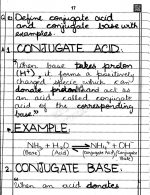 17
Define conjugate acid
and conjugate base with
examples.
1. CONJUGATE ACID:
"When base takes proton
(H⁺), it forms a positively
charged specie which can
donate proton and act as
an acid called conjugate
acid of the corresponding
base."
EXAMPLE:
NH₃ + H₂O ⇌ NH₄⁺ + OH⁻
(Base) (Acid) (Conjugate Acid) (Conjugate Base)
2. CONJUGATE BASE:
"When an acid donates